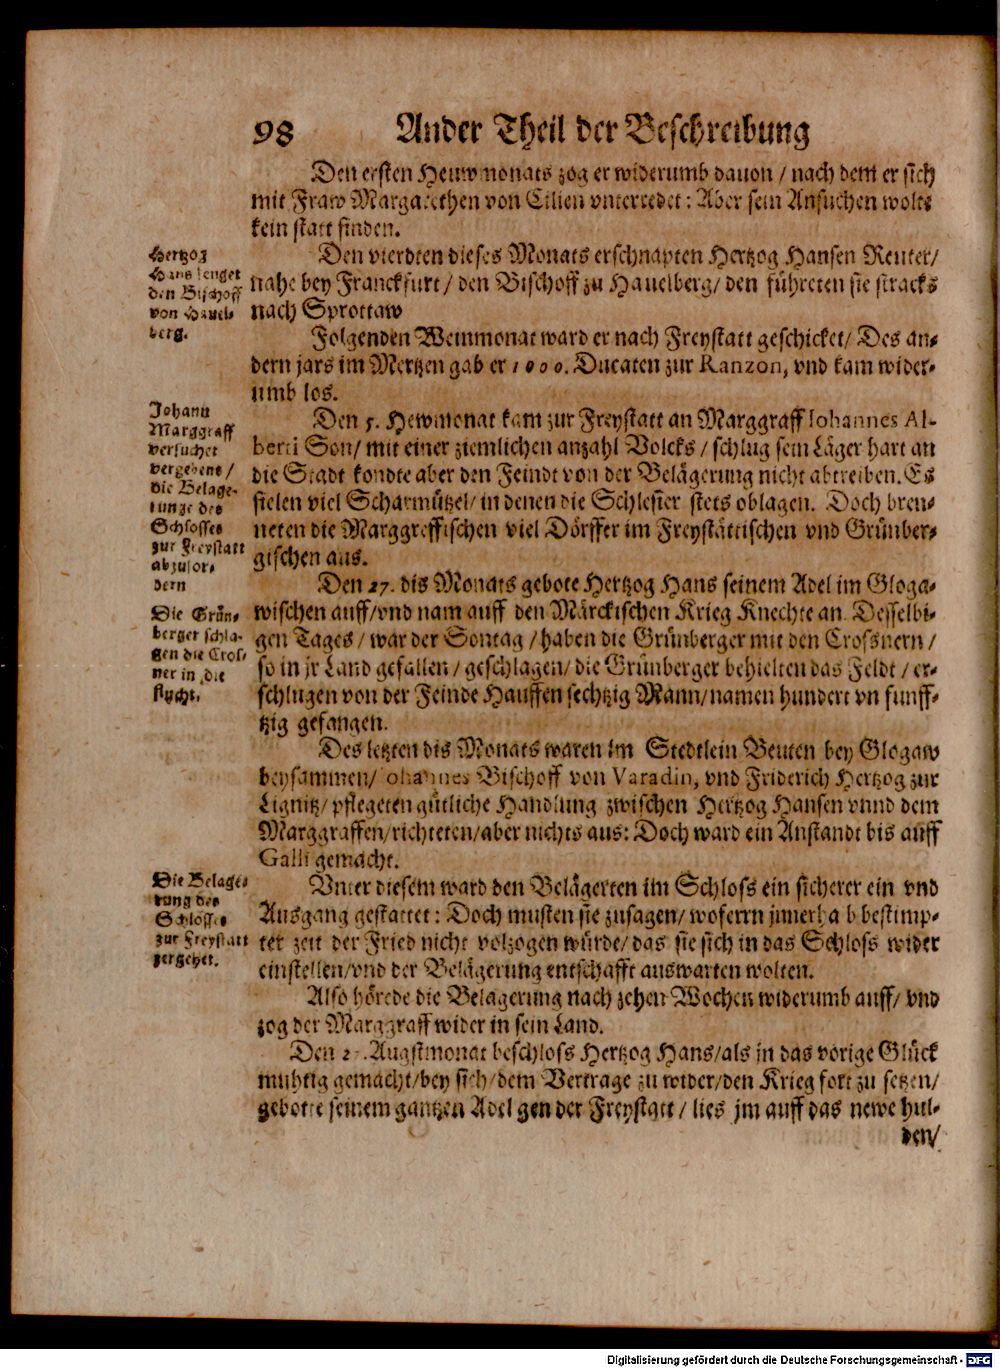 98 Ander Theil der Beschreibung
Den ersten Hewmonats zog er widerumb dauon / nach dem er sich
mit Fraw Margarethen von Cilien vnterredet : Aber sein Ansuchen wolte
kein statt finden.
Hertzog
Hans fenget
den Bischoff
von Hauel-
berg.
Den vierdten dieses Monats erschnapten Hertzog Hansen Reuter /
nahe bey Franckfurt / den Bischoff zu Hauelberg / den führeten sie stracks
nach Sprottaw
Folgenden Weinmonat ward er nach Freystatt geschicket / Des an-
dern jars im Mertzen gab er 1000. Ducaten zur Ranzon, vnd kam wider-
umb los.
Johann
Marggraff
versuchet
vergebens /
die Belage-
runge des
Schlosses
zur Freystatt
abzufor-
dern
Den 5. Hewmonat kam zur Freystatt an Marggraff Iohannes Al-
berti Son / mit einer ziemlichen anzahl Volcks / schlug sein Läger hart an
die Stadt kondte aber den Feindt von der Belägerung nicht abtreiben. Es
fielen viel Scharmützel / in denen die Schlesier stets oblagen. Doch bren-
neten die Marggreffischen viel Dörffer im Freystättischen vnd Grünber-
gischen aus.
Den 27. dis Monats gebote Hertzog Hans seinem Adel im Gloga-
wischen auff / vnd nam auff den Märckischen Krieg Knechte an Desselbi-
gen Tages / war der Sontag / haben die Grünberger mit den Crossnern /
so in jr Land gefallen / geschlagen / die Grünberger behielten das Feldt / er-
schlugen von der Feinde Hauffen sechtzig Mann / namen hundert vn funff-
tzig gefangen.
Die Grün-
berger schla-
gen die Cros-
ner in die
flucht.
Des letzten dis Monats waren im Stedtlein Beuten bey Glogaw
beysammen / Iohannes Bischoff von Varadin, vnd Friderich Hertzog zur
Lignitz / pflegeten gütliche Handlung zwischen Hertzog Hansen vnnd dem
Marggraffen / richteten / aber nichts aus : Doch ward ein Anstandt bis auff
Galli gemacht.
Die Belage-
rung des
Schlosses
zur Freystatt
zergehet.
Vnter diesem ward den Belägerten im Schloss ein sicherer ein vnd
Ausgang gestattet : Doch musten sie zusagen / woferrn jnnerhalb bestimp-
ter zeit der Fried nicht volzogen würde / das sie sich in das Schloss wider
einstellen / vnd der Belägerung entschafft auswarten wolten.
Also hörede die Belagerung nach zehen Wochen widerumb auff / vnd
zog der Marggraff wider in sein Land.
Den Augstmonat beschloss Hertzog Hans / als jn das vorige Glück
muhtig gemacht / bey sich / dem Vertrage zu wider / den Krieg fort zu setzen /
gebotte seinem gantzen Adel gen der Freystatt / lies jm auff das newe hul-
den /
Digitalisierung gefördert durch die Deutsche Forschungsgemeinschaft - DFG